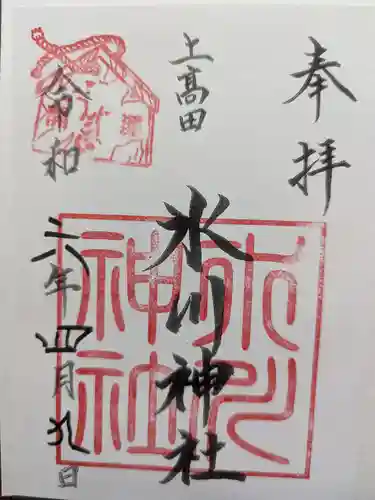 奉拝
上髙田
氷川神社
令和六年四月九日
氷川神社